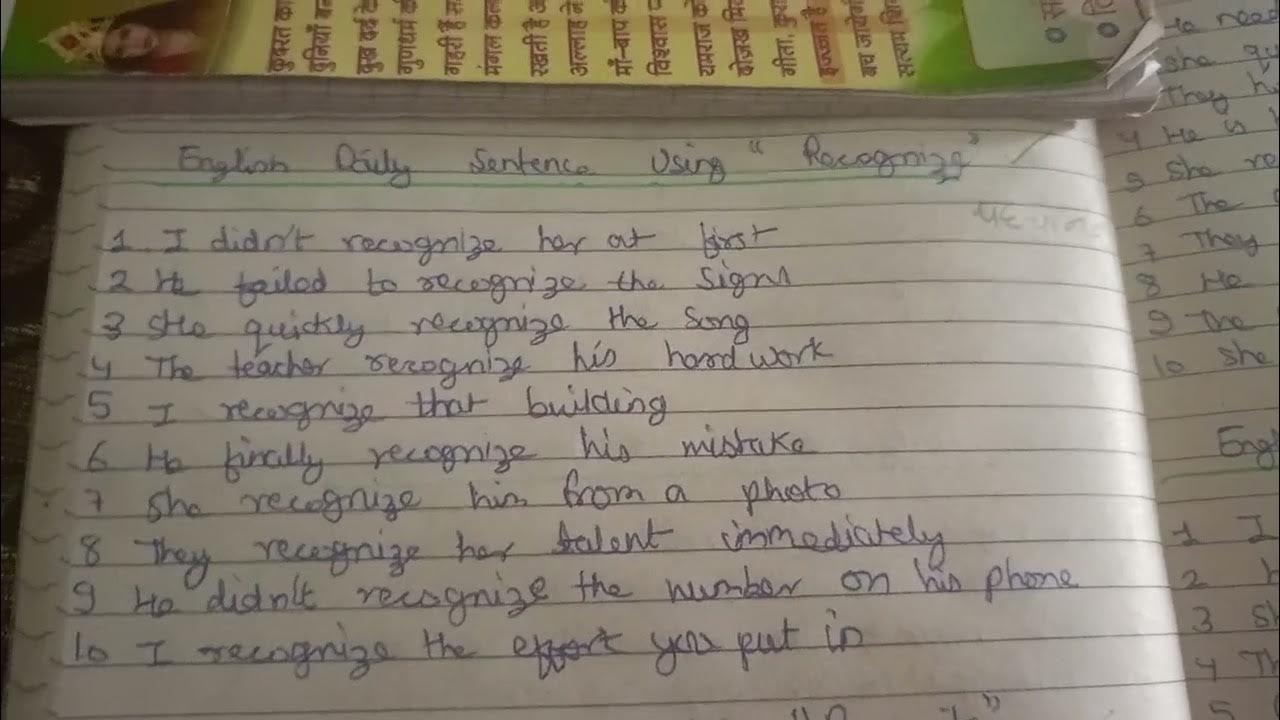 कुदरत का
दुनियाँ
दुख दर्द
गुणधर्म
गहरी है
मंगल
रखती है
अल्लाह ने
माँ-बाप
विश्वास
यमराज
दोजख
गीता,
इज्जत है
बच जाओगे
सत्यम
English Daily Sentence Using "Recognize"
1 I didn't recognize her at first
2 He failed to recognize the signs
3 She quickly recognize the song
4 The teacher recognize his hard work
5 I recognize that building
6 He finally recognize his mistake
7 She recognize him from a photo
8 They recognize her talent immediately
9 He didn't recognize the number on his phone
10 I recognize the effort you put in
to need
she
They
4 He is
5 She re
6 The
7 They
8 He
9 The
10 She
Engl
1 I
2
3 Sh
4 Th
5